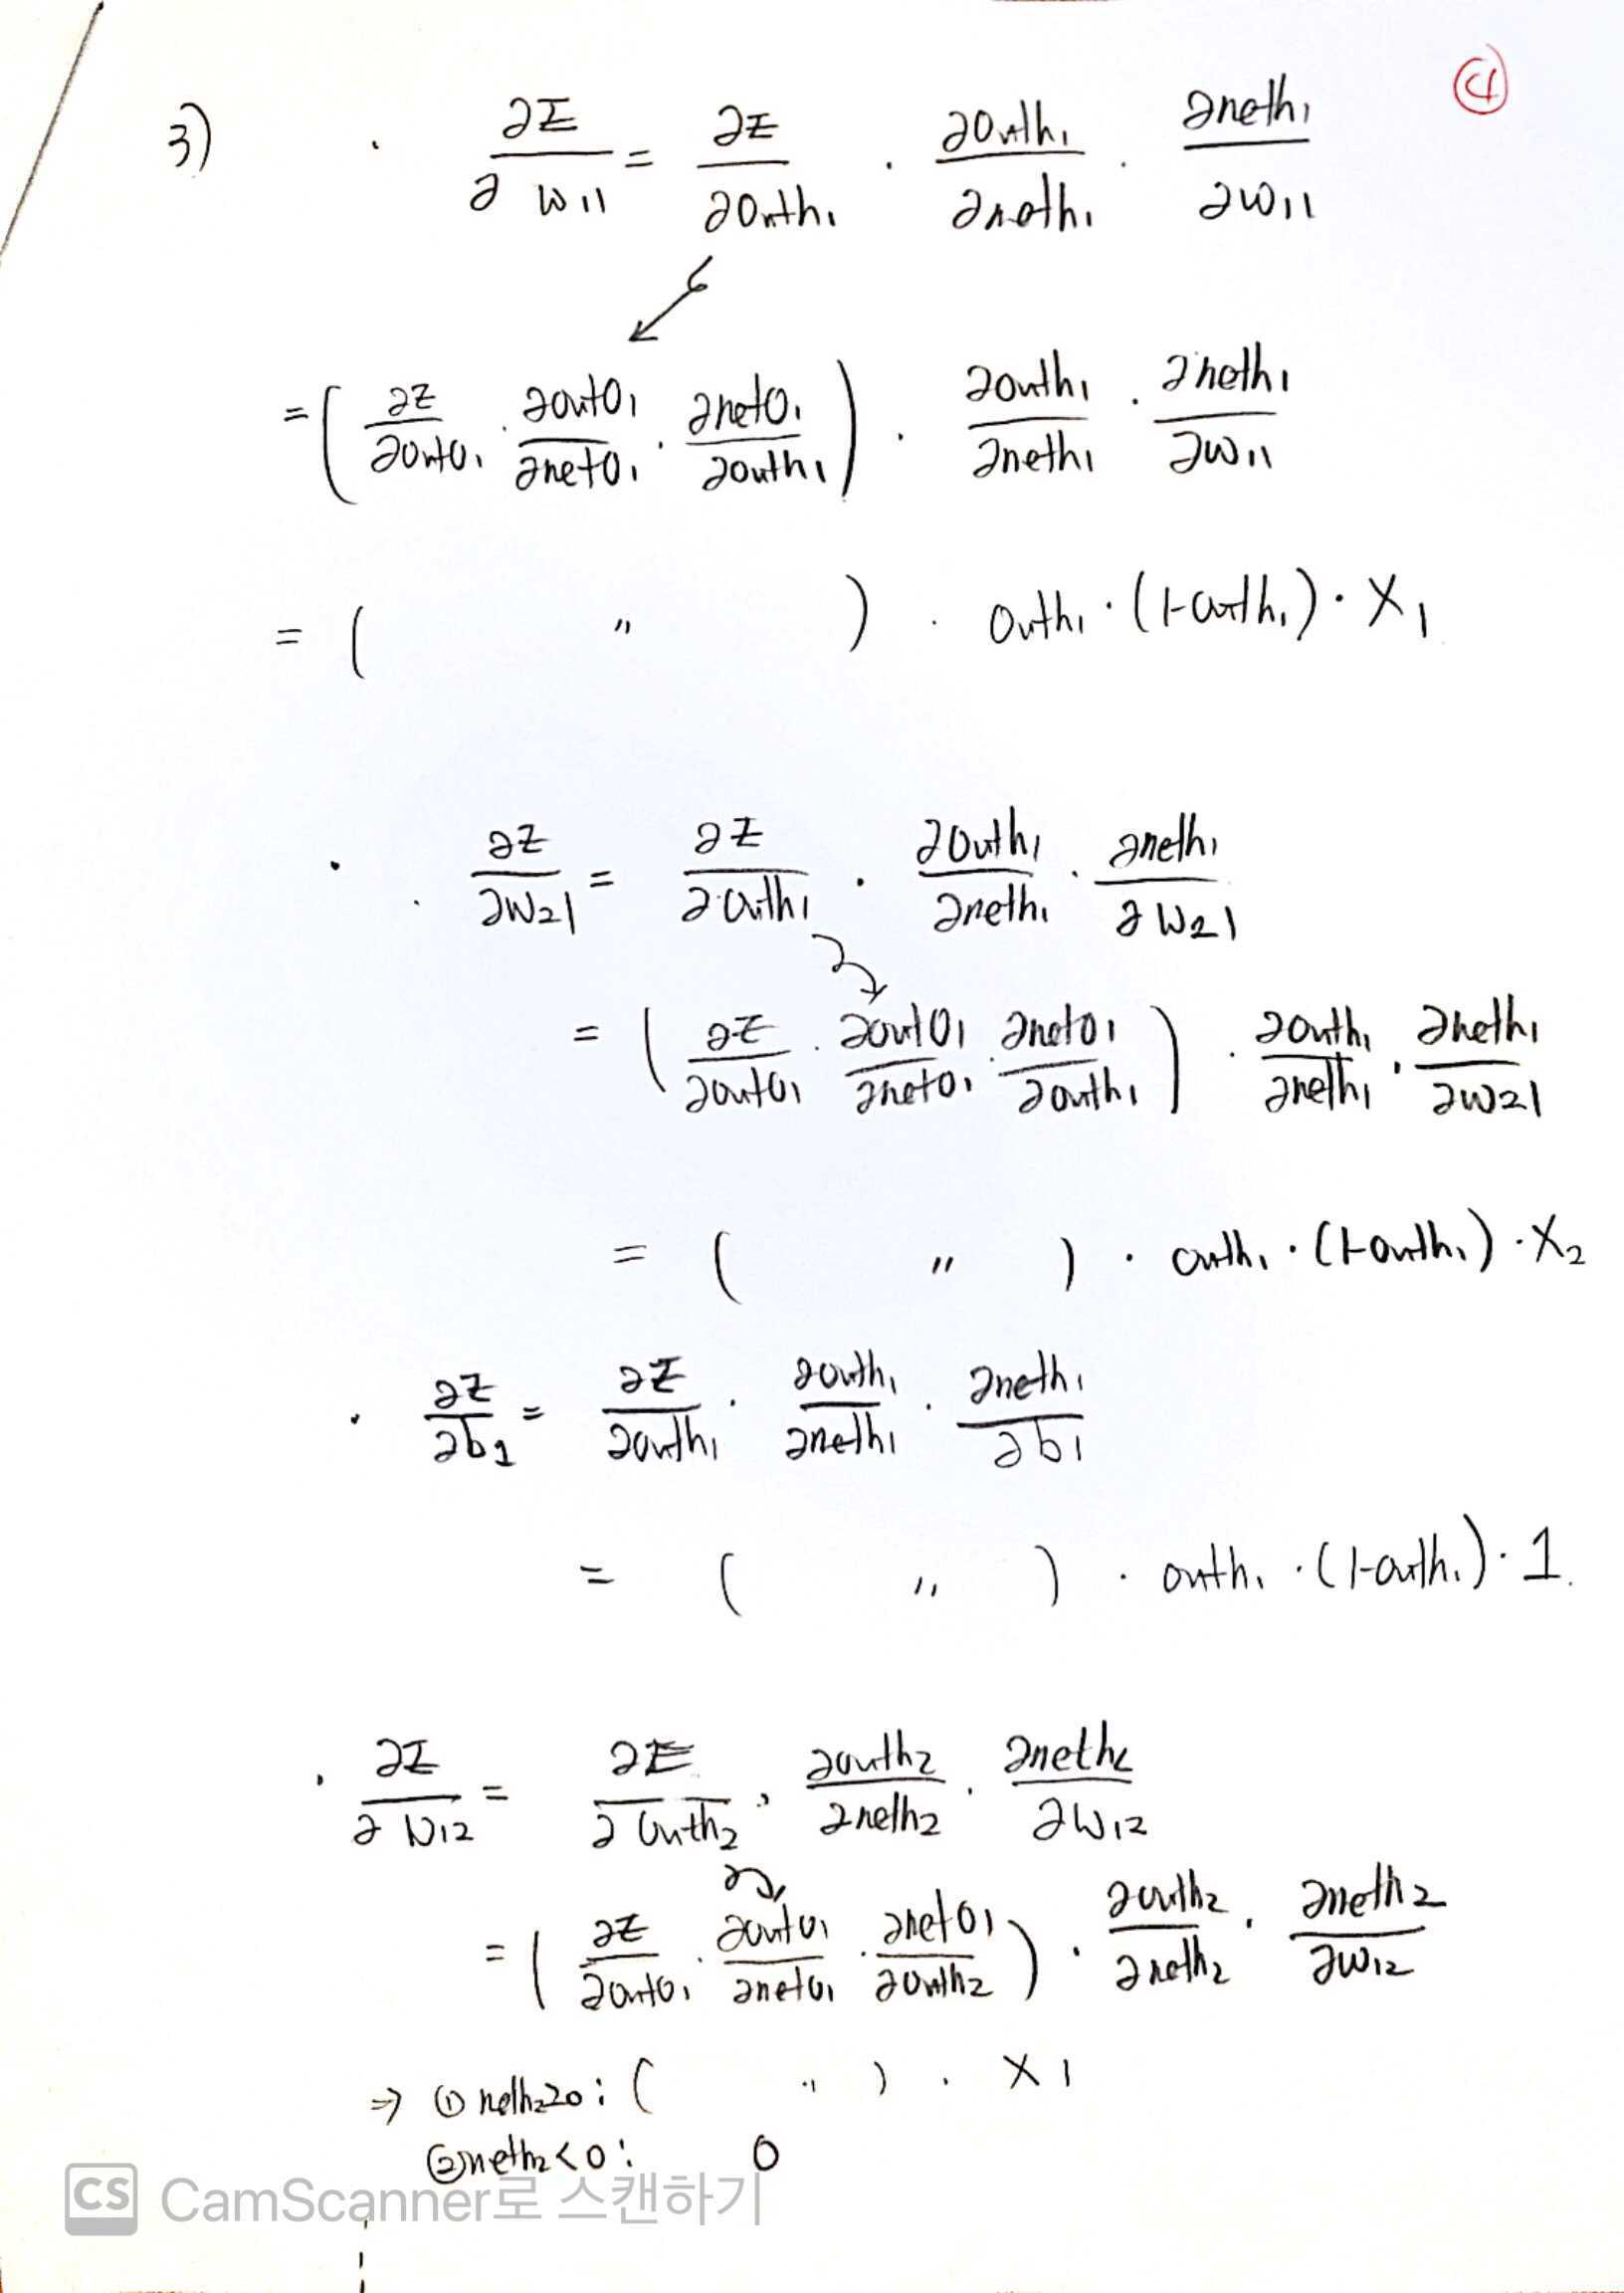 ④
3) · ∂E/∂w11 = ∂E/∂outh1 · ∂outh1/∂neth1 · ∂neth1/∂w11
= ( ∂E/∂outo1 · ∂outo1/∂neto1 · ∂neto1/∂outh1 ) · ∂outh1/∂neth1 · ∂neth1/∂w11
= ( 〃 ) · outh1 · (1-outh1) · X1
· ∂E/∂w21 = ∂E/∂outh1 · ∂outh1/∂neth1 · ∂neth1/∂w21
= ( ∂E/∂outo1 · ∂outo1/∂neto1 · ∂neto1/∂outh1 ) · ∂outh1/∂neth1 · ∂neth1/∂w21
= ( 〃 ) · outh1 · (1-outh1) · X2
· ∂E/∂b1 = ∂E/∂outh1 · ∂outh1/∂neth1 · ∂neth1/∂b1
= ( 〃 ) · outh1 · (1-outh1) · 1.
· ∂E/∂w12 = ∂E/∂outh2 · ∂outh2/∂neth2 · ∂neth2/∂w12
= ( ∂E/∂outo1 · ∂outo1/∂neto1 · ∂neto1/∂outh2 ) · ∂outh2/∂neth2 · ∂neth2/∂w12
⇒ ① neth2≥0 : ( 〃 ) · X1
② neth2<0 : 0
CS CamScanner로 스캔하기